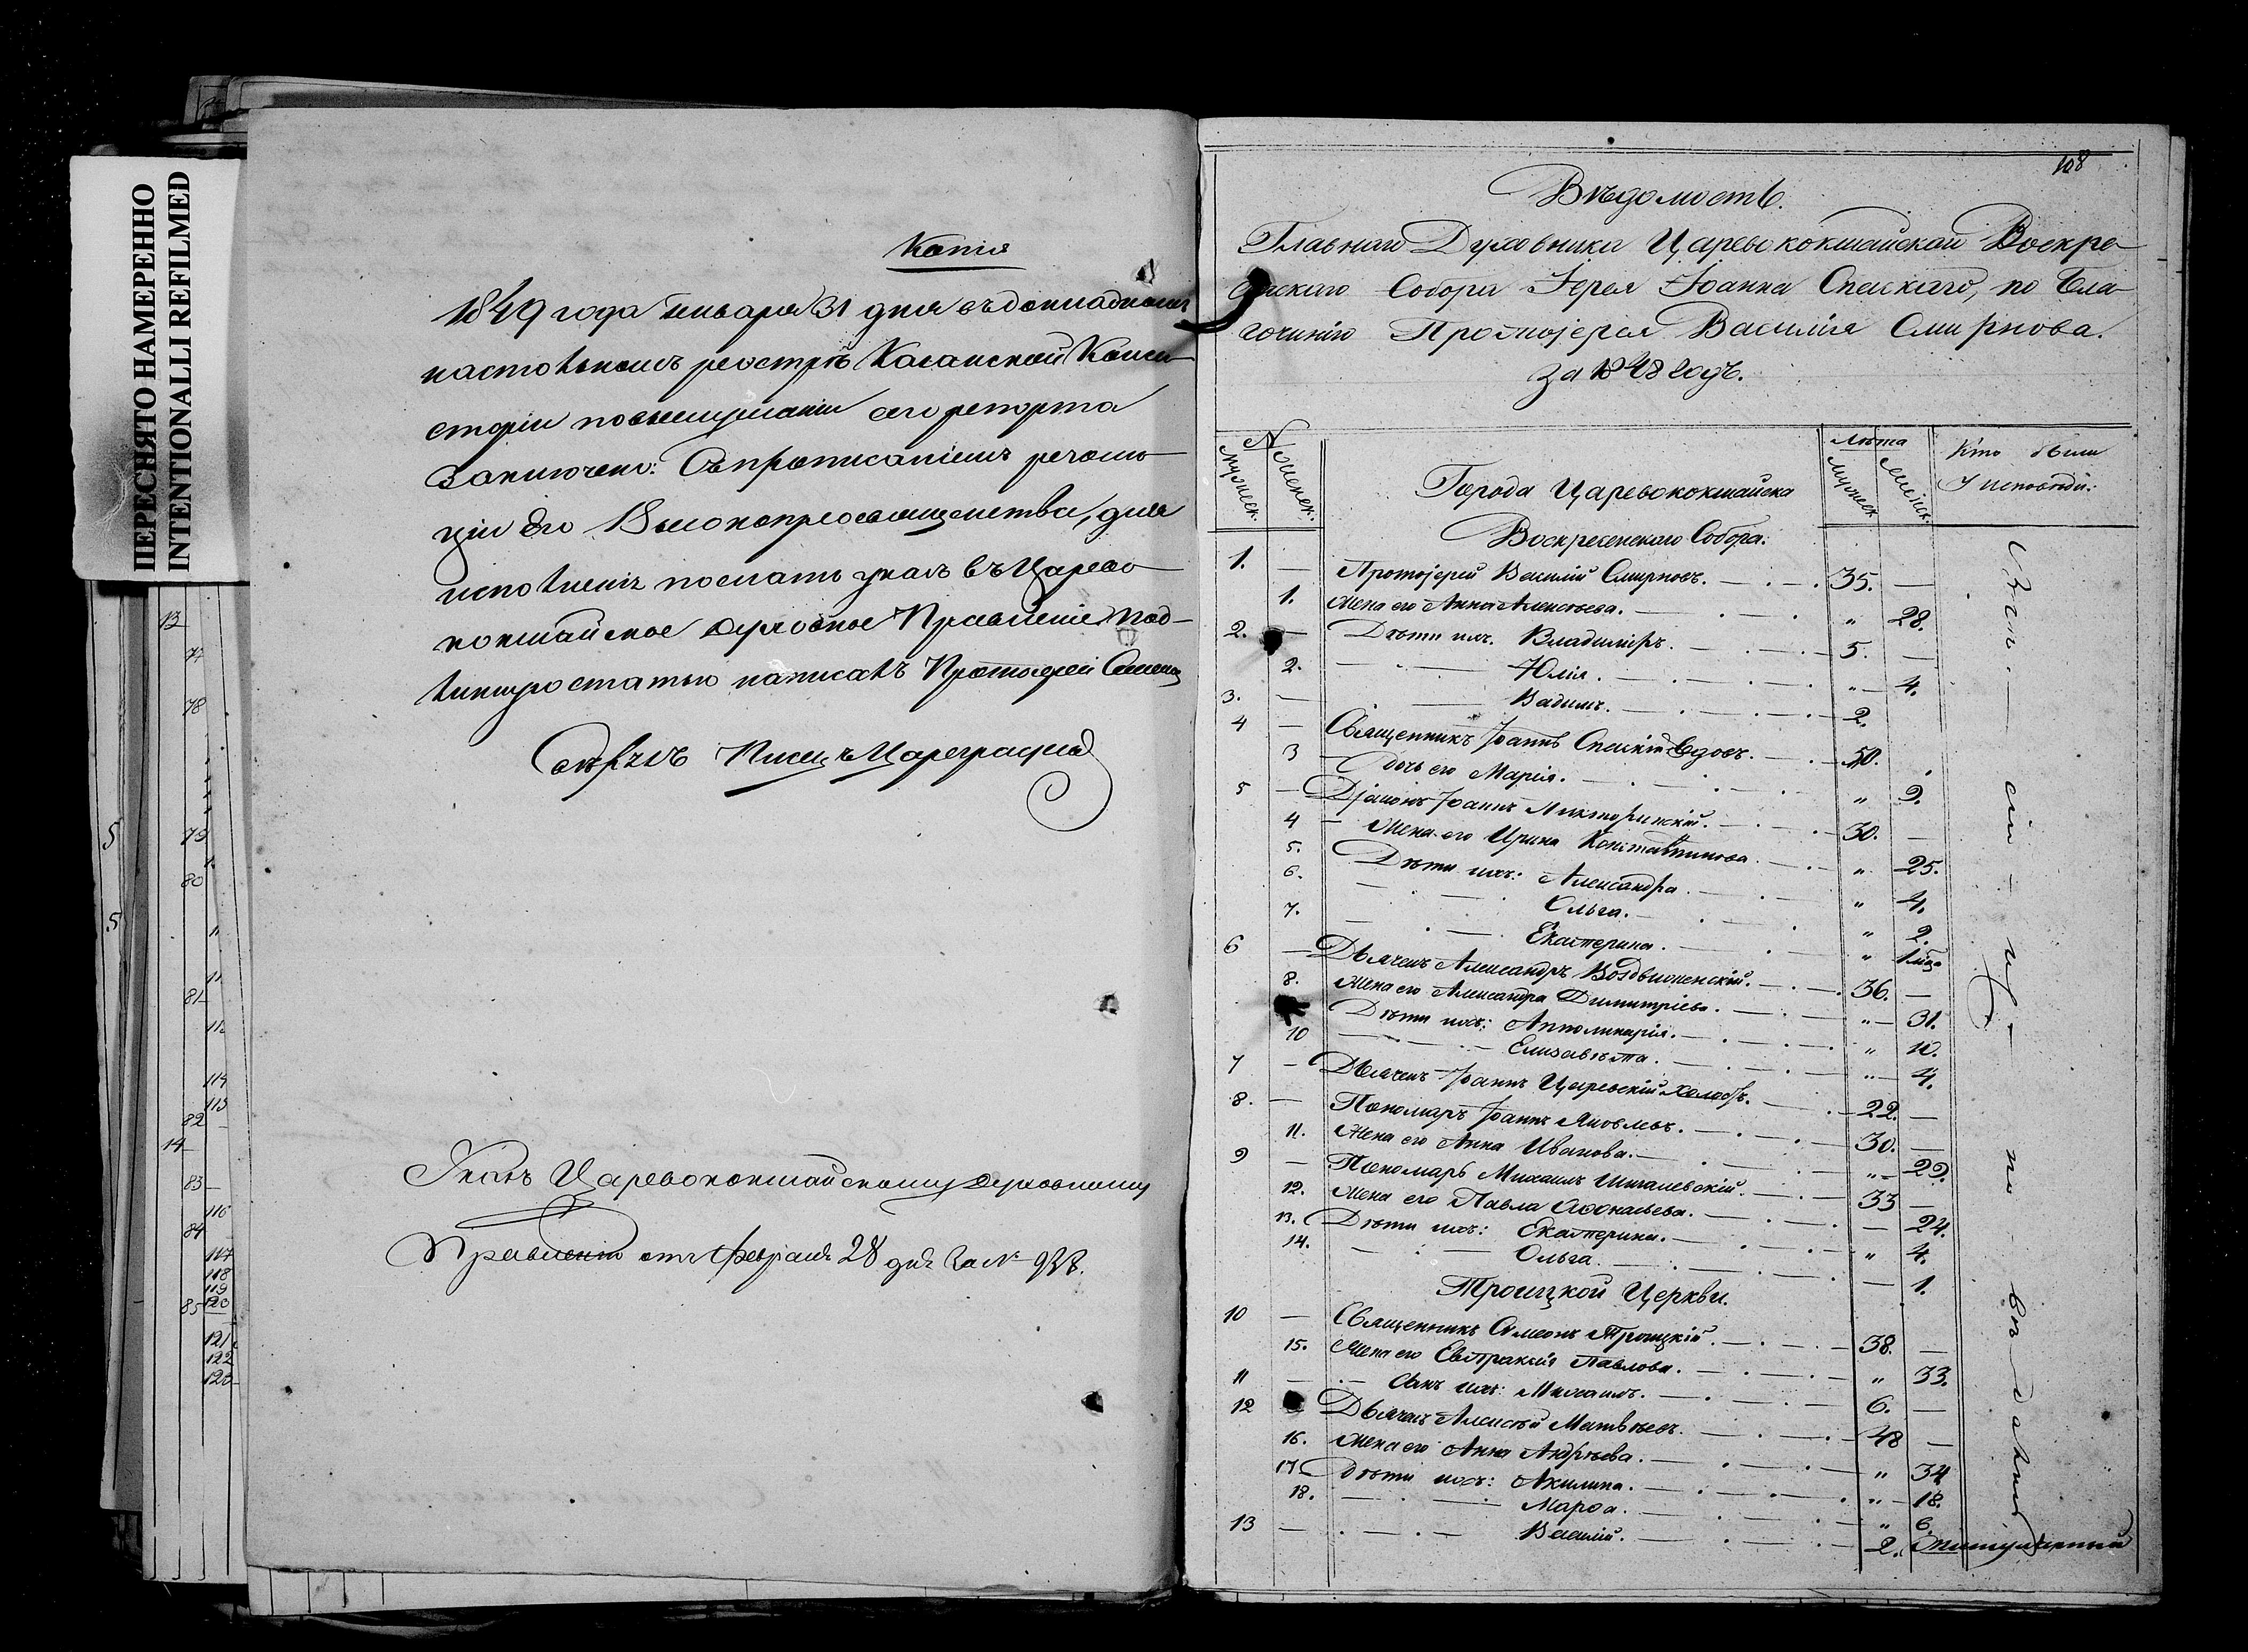 ПЕРЕСНЯТО НАМЕРЕННО
INTENTIONALLI REFILMED
Копія
1849 года Января 31 дня въ докладномъ
настольномъ реэстрѣ Казанской Конси-
сторіи по выслушаніи сего репорта
Заключено: Съ прописаніемъ резолю-
ціи Его Высокопреосвященства, для
исполненія послать указъ въ Царево-
кокшайское Духовное Правленіе. Под-
линную статью написалъ Протоіерей
Свѣрялъ Писецъ Цареградскій
Указъ Царевококшайскому Духовному
Правленію отъ февраля 28 дня За № 938.
13
77
78
79
80
81
82
83
84
85
5
5
14
114
115
116
117
118
119
120
121
122
123
108
Вѣдомость.
Главнаго Духовника Царевококшайскаго Воскре-
сенскаго Собора Іерея Іоанна Спасскаго, по Бла-
гочинію Протоіерея Василія Смирнова.
За 1848 годъ.
№
Мужеск. Женск.
Города Царевококшайска
Лѣта
Мужеск. Женск.
Кто были
У исповѣди:
Воскресенскаго Собора:
1. — Протоіерей Василій Смирновъ. 35. —
1. Жена его Анна Алексѣева. " 28.
2. — Дѣти ихъ. Владиміръ. 5. —
2. Юлія. " 4.
3. — Вадимъ. 2.
4 — Священникъ Іоаннъ Спасскій вдовъ. 50.
3 — Дочь его Марія. " 9.
5 — Діаконъ Іоаннъ Микторинскій. 30. —
4 — Жена его Ирина Константинова. " 25.
5. Дѣти ихъ: Александра. " 4.
6. Ольга. " 2.
7. Екатерина. " 1 мѣс.
6 — Дьячекъ Александръ Воздвиженскій. 36. —
8. Жена его Александра Димитріева. " 31.
Дѣти ихъ: Апполинарія. " 10.
10 Елизавета. " 4.
7 — Дьячекъ Іоаннъ Царевскій холостъ. 22. —
8. — Пономарь Іоаннъ Яковлевъ. 30. —
11. Жена его Анна Иванова. " 29.
9 — Пономарь Михаилъ Шигалевскій. 33 —
12. Жена его Павла Аѳонасьева. — 24.
13. Дѣти ихъ: Екатерина. " 4.
14. Ольга. — 1.
Троицкой Церкви.
10 — Священникъ Симеонъ Троицкій. 38. —
15. Жена его Евпраксія Павлова. " 33.
11 — Сынъ ихъ: Михаилъ. 6. —
12 — Дьячекъ Алексѣй Матвѣевъ. 48 —
16. Жена его Анна Андрѣева. " 34
17. Дѣти ихъ: Акилина. " 18.
18. Марѳа. " 6.
13 — Василій. 2.
Всѣ — сіи — и — по — вѣ